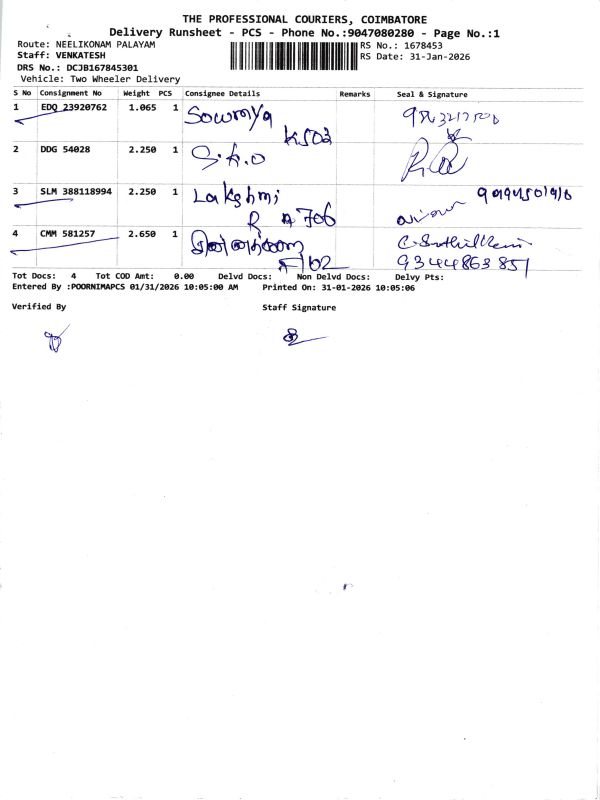 THE PROFESSIONAL COURIERS, COIMBATORE
Delivery Runsheet - PCS - Phone No.:9047080280 - Page No.:1
Route: NEELIKONAM PALAYAM
RS No.: 1678453
Staff: VENKATESH
RS Date: 31-Jan-2026
DRS No.: DCJB167845301
Vehicle: Two Wheeler Delivery
S No Consignment No Weight PCS Consignee Details Remarks Seal & Signature
1 EDQ 23920762 1.065 1 Sowmya
K503
2 DDG 54028 2.250 1 S.K.O
3 SLM 388118994 2.250 1 Lakshmi
R A 706
4 CMM 581257 2.650 1
F102 9344863851
Tot Docs: 4 Tot COD Amt: 0.00 Delvd Docs: Non Delvd Docs: Delvy Pts:
Entered By :POORNIMAPCS 01/31/2026 10:05:00 AM Printed On: 31-01-2026 10:05:06
Verified By Staff Signature